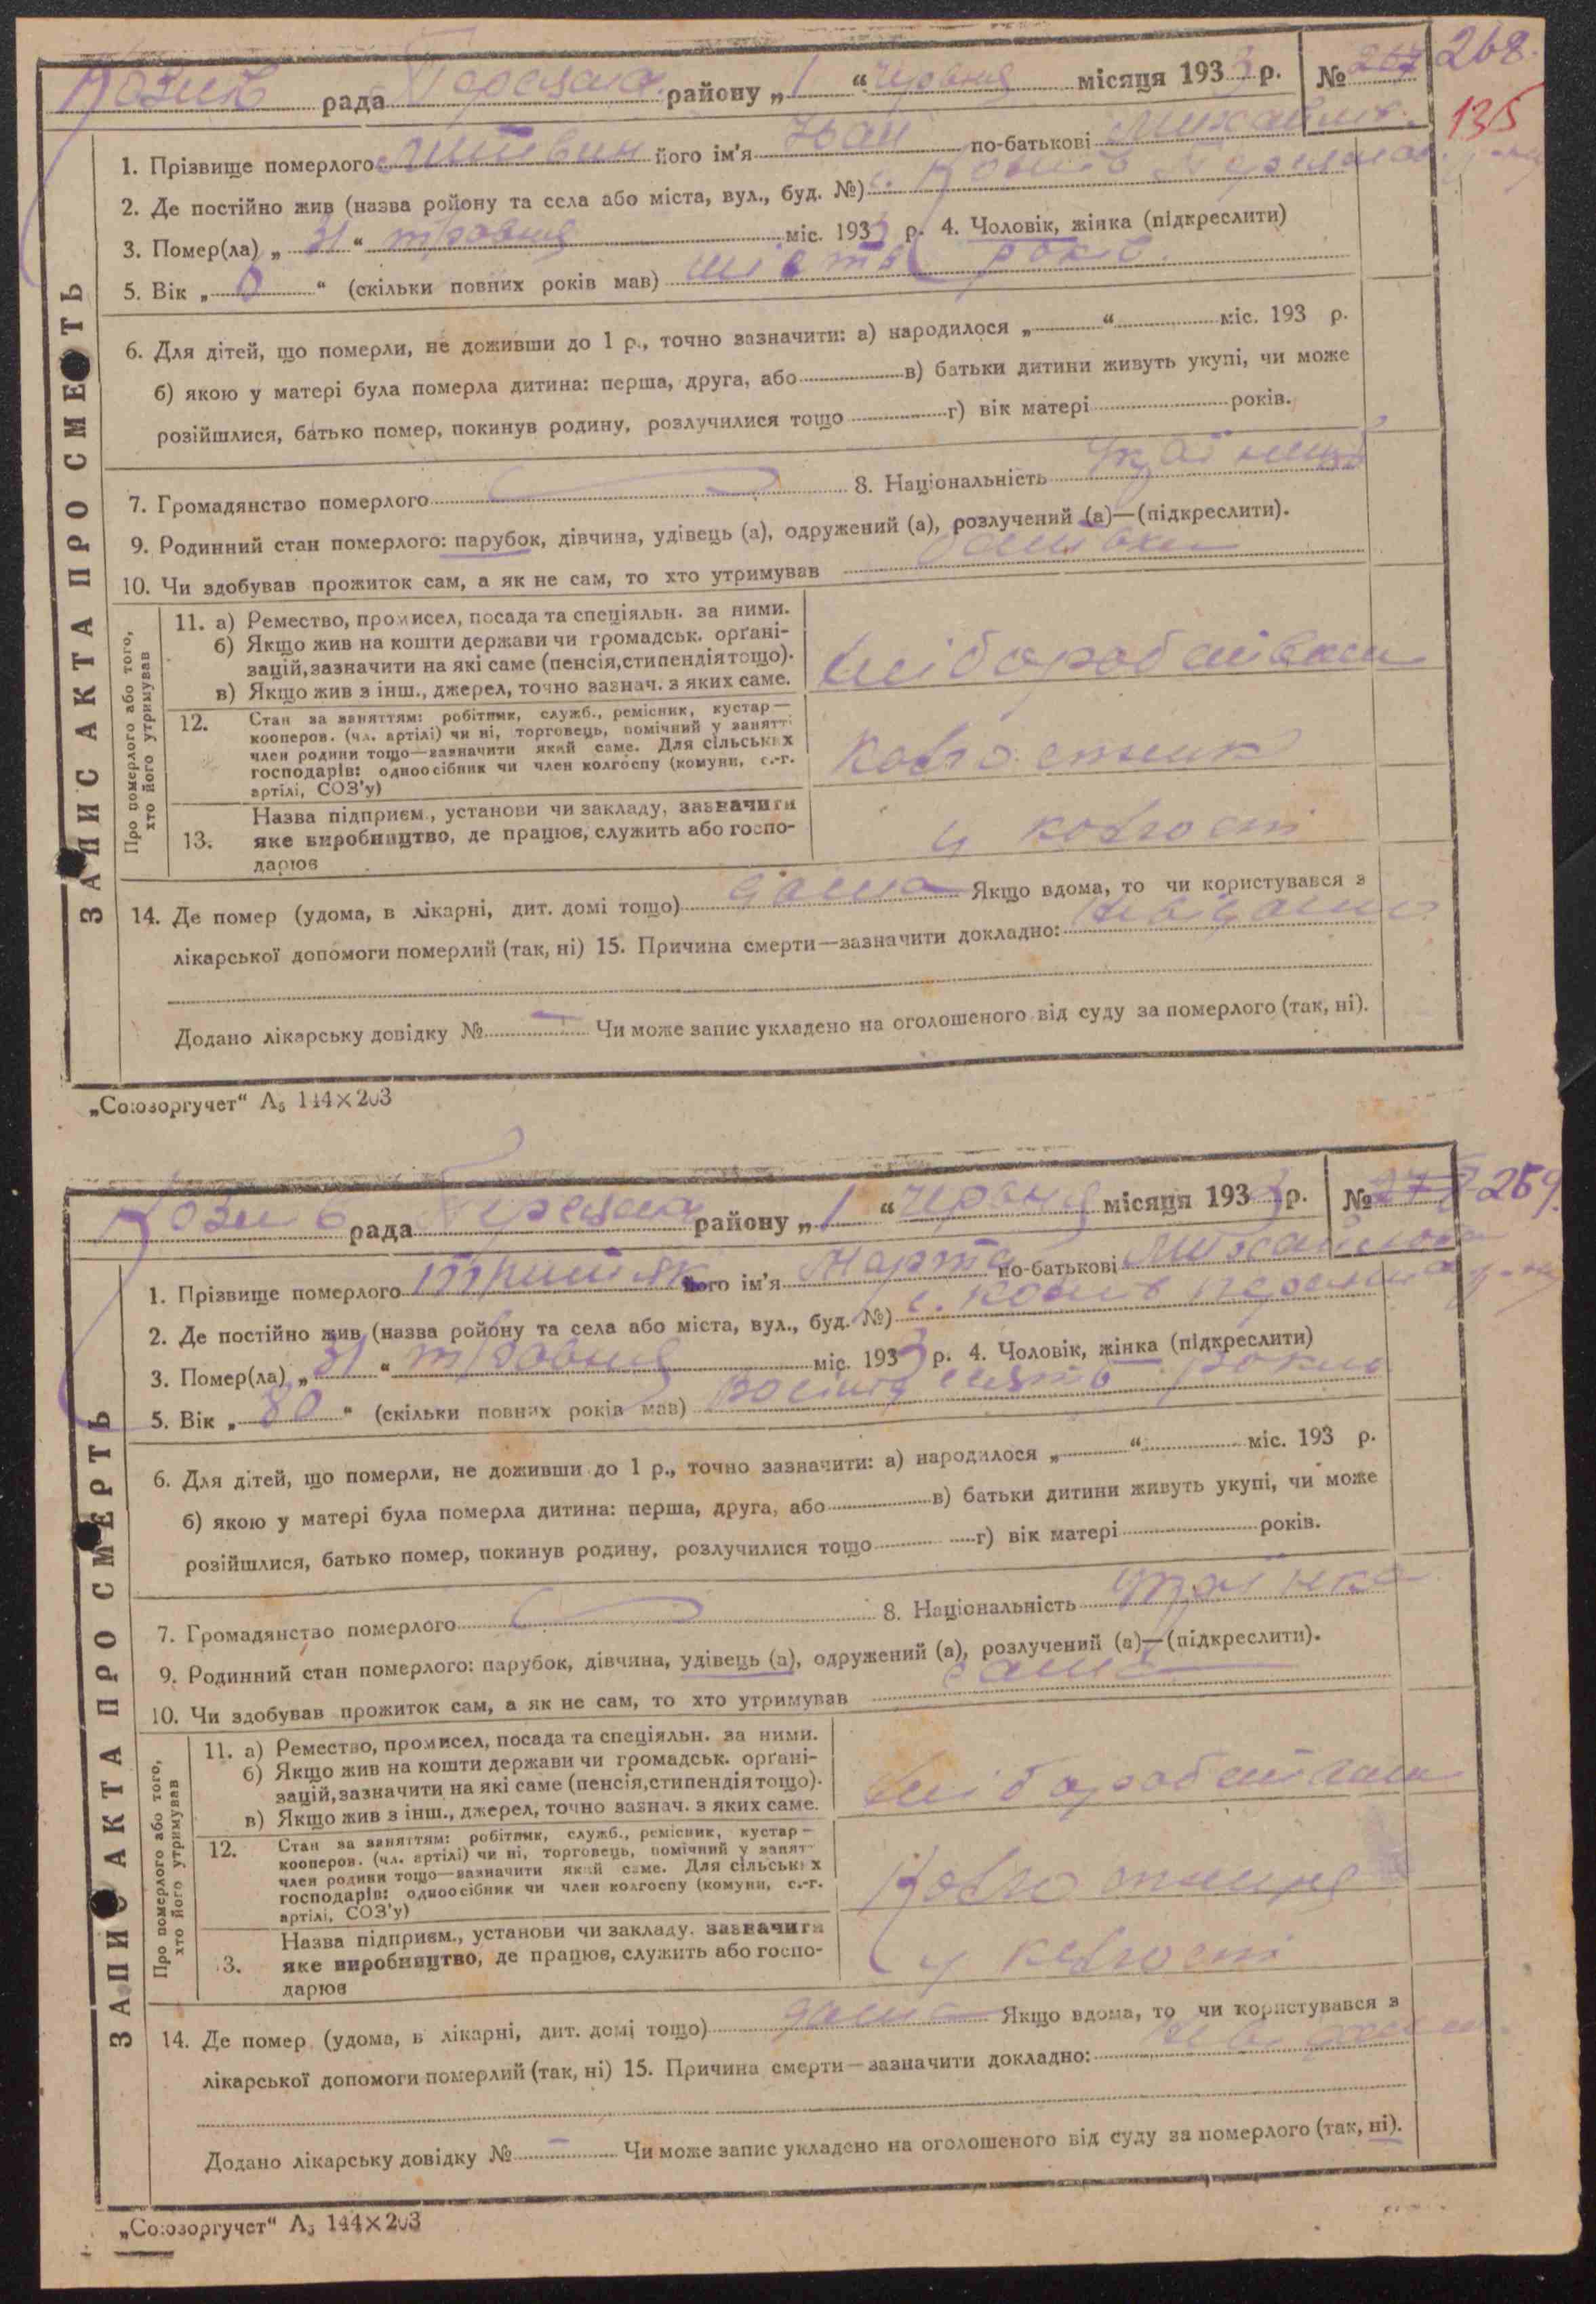 Козин рада Переяслав району „1“ Червня місяця 1933 р. № 267 268.
135
1. Прізвище померлого Литвин його ім'я Іван по-батькові Михайлов.
2. Де постійно жив (назва ройону та села або міста, вул., буд. №) с. Козин
3. Помер(ла) „31“ травня міс. 1933 р. 4. Чоловік, жінка (підкреслити)
5. Вік „ “ (скільки повних років мав) шість років.
6. Для дітей, що померли, не доживши до 1 р., точно зазначити: а) народилося „ “ міс. 193 р.
б) якою у матері була померла дитина: перша, друга, або в) батьки дитини живуть укупі, чи може
розійшлися, батько помер, покинув родину, розлучилися тощо г) вік матері років.
7. Громадянство померлого 8. Національність
9. Родинний стан померлого: парубок, дівчина, удівець (а), одружений (а), розлучений (а)—(підкреслити).
10. Чи здобував прожиток сам, а як не сам, то хто утримував
ЗАПИС АКТА ПРО СМЕРТЬ
Про померлого або того, хто його утримував
11. а) Ремество, промисел, посада та спеціяльн. за ними.
б) Якщо жив на кошти держави чи громадськ. орґані-
зацій, зазначити на які саме (пенсія, стипендія тощо).
в) Якщо жив з інш., джерел, точно зазнач. з яких саме.
12. Стан за заняттям: робітник, служб., ремісник, кустар—
кооперов. (чл. артілі) чи ні, торговець, помічний у занятт
член родини тощо—зазначити який саме. Для сільських
господарів: одноосібник чи член колгоспу (комуни, с.-г.
артілі, СОЗ'у)
13. Назва підприєм., установи чи закладу, зазначити
яке виробництво, де працює, служить або госпо-
дарює
у колгоспі
14. Де помер (удома, в лікарні, дит. домі тощо) дома Якщо вдома, то чи користувався з
лікарської допомоги померлий (так, ні) 15. Причина смерти—зазначити докладно: невідомо
Додано лікарську довідку № — Чи може запис укладено на оголошеного від суду за померлого (так, ні).
„Союзоргучет“ А5 144×203
Козин рада Переяслав району „1“ Червня місяця 1933 р. № 259.
1. Прізвище померлого його ім'я Марта по-батькові Михайлова
2. Де постійно жив (назва ройону та села або міста, вул., буд. №) с. Козин
3. Помер(ла) „31“ травня міс. 1933 р. 4. Чоловік, жінка (підкреслити)
5. Вік „80“ (скільки повних років мав)
6. Для дітей, що померли, не доживши до 1 р., точно зазначити: а) народилося „ “ міс. 193 р.
б) якою у матері була померла дитина: перша, друга, або в) батьки дитини живуть укупі, чи може
розійшлися, батько помер, покинув родину, розлучилися тощо г) вік матері років.
7. Громадянство померлого 8. Національність
9. Родинний стан померлого: парубок, дівчина, удівець (а), одружений (а), розлучений (а)—(підкреслити).
10. Чи здобував прожиток сам, а як не сам, то хто утримував сама
ЗАПИС АКТА ПРО СМЕРТЬ
Про померлого або того, хто його утримував
11. а) Ремество, промисел, посада та спеціяльн. за ними.
б) Якщо жив на кошти держави чи громадськ. орґані-
зацій, зазначити на які саме (пенсія, стипендія тощо).
в) Якщо жив з інш., джерел, точно зазнач. з яких саме.
12. Стан за заняттям: робітник, служб., ремісник, кустар—
кооперов. (чл. артілі) чи ні, торговець, помічний у занят
член родини тощо—зазначити який саме. Для сільських
господарів: одноосібник чи член колгоспу (комуни, с.-г.
артілі, СОЗ'у)
3. Назва підприєм., установи чи закладу, зазначити
яке виробництво, де працює, служить або госпо-
дарює
у колгоспі
14. Де помер (удома, в лікарні, дит. домі тощо) дома Якщо вдома, то чи користувався з
лікарської допомоги померлий (так, ні) 15. Причина смерти—зазначити докладно: невідомо
Додано лікарську довідку № — Чи може запис укладено на оголошеного від суду за померлого (так, ні).
„Союзоргучет“ А5 144×203